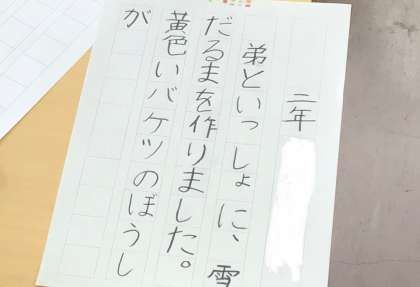 二年
弟といっしょに、雪
だるまを作りました。
黄色いバケツのぼうし
が